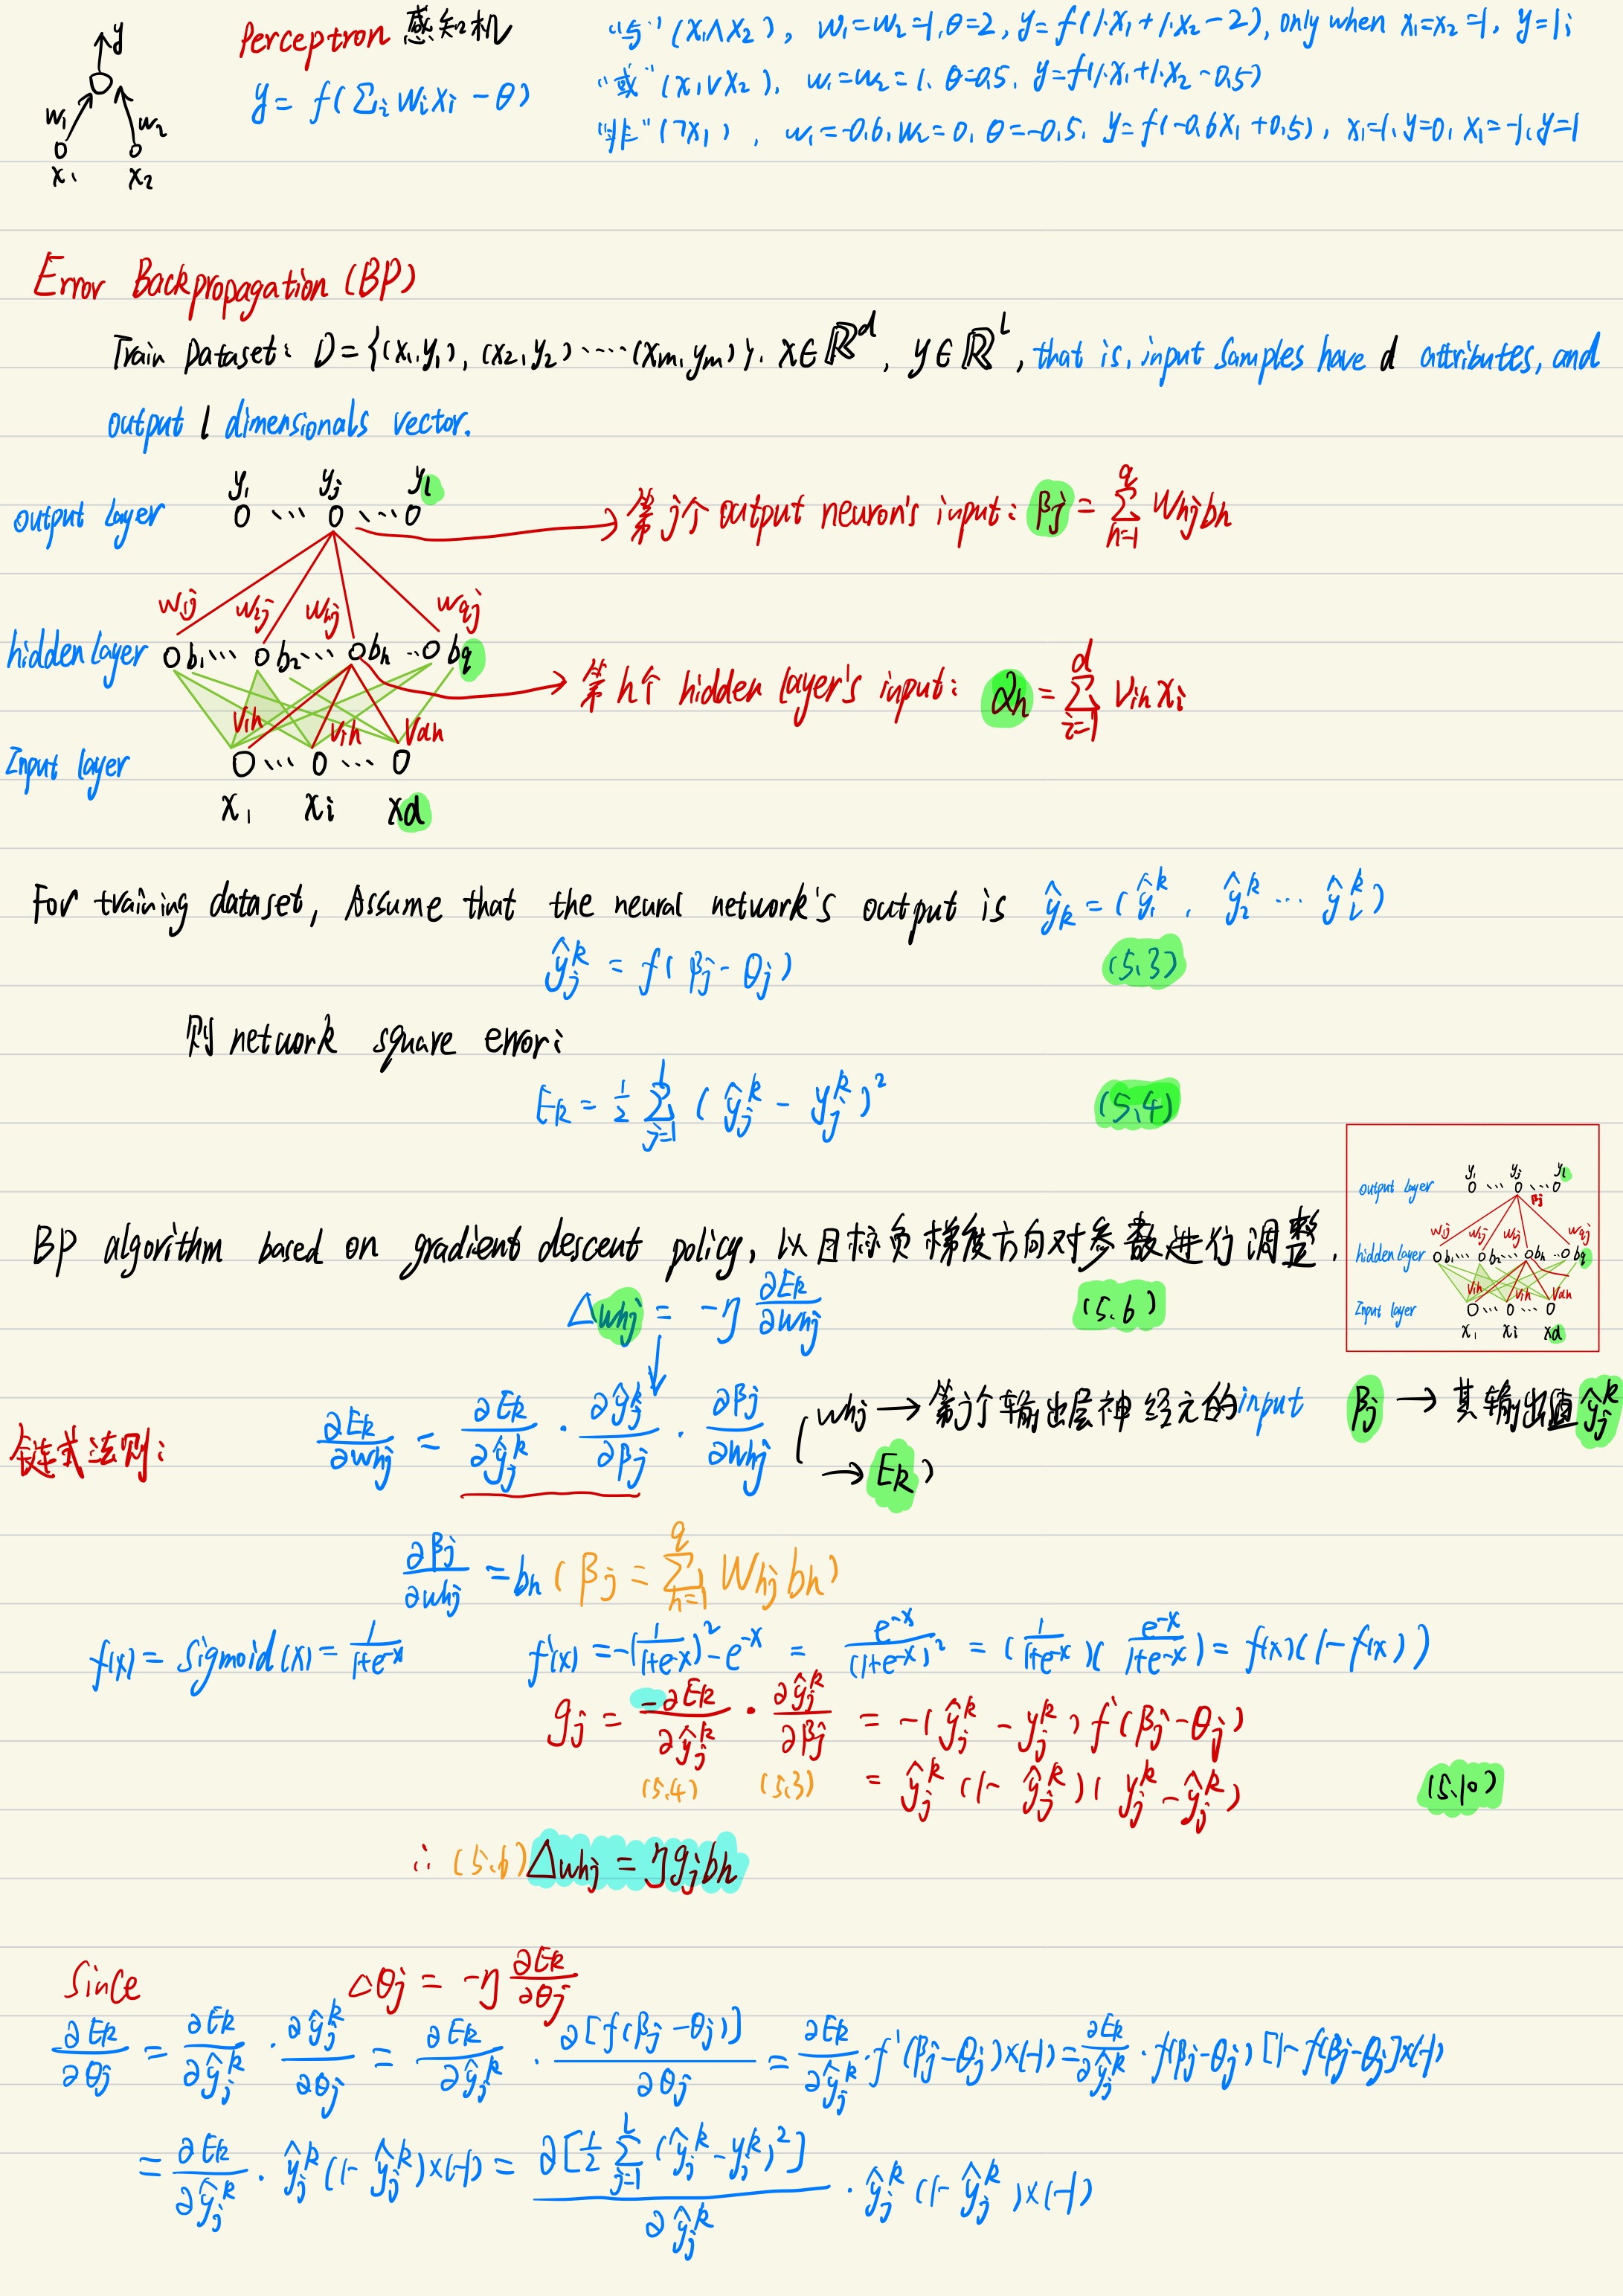 y
w₁ w₂
x₁ x₂
Perceptron 感知机
y = f(∑ᵢ wᵢxᵢ − θ)
“与” (x₁∧x₂), w₁=w₂=1, θ=2, y=f(1·x₁+1·x₂−2), only when x₁=x₂=1, y=1;
“或” (x₁∨x₂), w₁=w₂=1, θ=0.5, y=f(1·x₁+1·x₂−0.5)
“非” (¬x₁), w₁=−0.6, w₂=0, θ=−0.5, y=f(−0.6x₁+0.5), x₁=1, y=0, x₁=−1, y=1
Error Backpropagation (BP)
Train Dataset: D={(x₁,y₁), (x₂,y₂)····(xₘ,yₘ)}. x∈ℝᵈ, y∈ℝˡ, that is, input samples have d attributes, and
output l dimensionals vector.
y₁ yⱼ yₗ
output layer ··· ···
第j个 output neuron's input: βⱼ = ∑_{h=1}^{q} w_{hj}b_h
w₁ⱼ w₂ⱼ w_{hj} w_{qj}
hidden layer b₁··· b₂··· b_h ·· b_q
第h个 hidden layer's input: α_h = ∑_{i=1}^{d} v_{ih}xᵢ
v_{ih} v_{ih} v_{dh}
Input layer ··· ···
x₁ xᵢ x_d
For training dataset, Assume that the neural network's output is ŷ_k = (ŷ₁ᵏ, ŷ₂ᵏ ··· ŷₗᵏ)
ŷⱼᵏ = f(βⱼ − θⱼ) (5.3)
则 network square error:
E_k = ½ ∑_{j=1}^{l} (ŷⱼᵏ − yⱼᵏ)² (5.4)
BP algorithm based on gradient descent policy, 以目标负梯度方向对参数进行调整.
y₁ yⱼ yₗ
output layer ··· ··· βⱼ
w₁ⱼ w₂ⱼ w_{hj} w_{qj}
hidden layer b₁··· b₂··· b_h ·· b_q
v_{ih} v_{ih} v_{dh}
Input layer ··· ···
x₁ xᵢ x_d
Δw_{hj} = −η ∂E_k/∂w_{hj} (5.6)
链式法则: ∂E_k/∂w_{hj} = ∂E_k/∂ŷⱼᵏ · ∂ŷⱼᵏ/∂βⱼ · ∂βⱼ/∂w_{hj} (w_{hj} → 第j个输出层神经元的input βⱼ → 其输出值ŷⱼᵏ
→ E_k)
∂βⱼ/∂w_{hj} = b_h (βⱼ = ∑_{h=1}^{q} w_{hj}b_h)
f(x) = Sigmoid(x) = 1/(1+e⁻ˣ) f'(x) = −(1/(1+e⁻ˣ))²−e⁻ˣ = e⁻ˣ/(1+e⁻ˣ)² = (1/(1+e⁻ˣ))(e⁻ˣ/(1+e⁻ˣ)) = f(x)(1−f(x))
gⱼ = −∂E_k/∂ŷⱼᵏ · ∂ŷⱼᵏ/∂βⱼ = −(ŷⱼᵏ − yⱼᵏ) f'(βⱼ−θⱼ)
(5.4) (5.3) = ŷⱼᵏ(1−ŷⱼᵏ)(yⱼᵏ−ŷⱼᵏ) (5.10)
∴ (5.6) Δw_{hj} = ηgⱼb_h
Since Δθⱼ = −η ∂E_k/∂θⱼ
∂E_k/∂θⱼ = ∂E_k/∂ŷⱼᵏ · ∂ŷⱼᵏ/∂θⱼ = ∂E_k/∂ŷⱼᵏ · ∂[f(βⱼ−θⱼ)]/∂θⱼ = ∂E_k/∂ŷⱼᵏ · f'(βⱼ−θⱼ)×(−1) = ∂E_k/∂ŷⱼᵏ · f(βⱼ−θⱼ)[1−f(βⱼ−θⱼ]×(−1)
= ∂E_k/∂ŷⱼᵏ · ŷⱼᵏ(1−ŷⱼᵏ)×(−1) = ∂[½ ∑_{j=1}^{l} (ŷⱼᵏ−yⱼᵏ)²]/∂ŷⱼᵏ · ŷⱼᵏ(1−ŷⱼᵏ)×(−1)